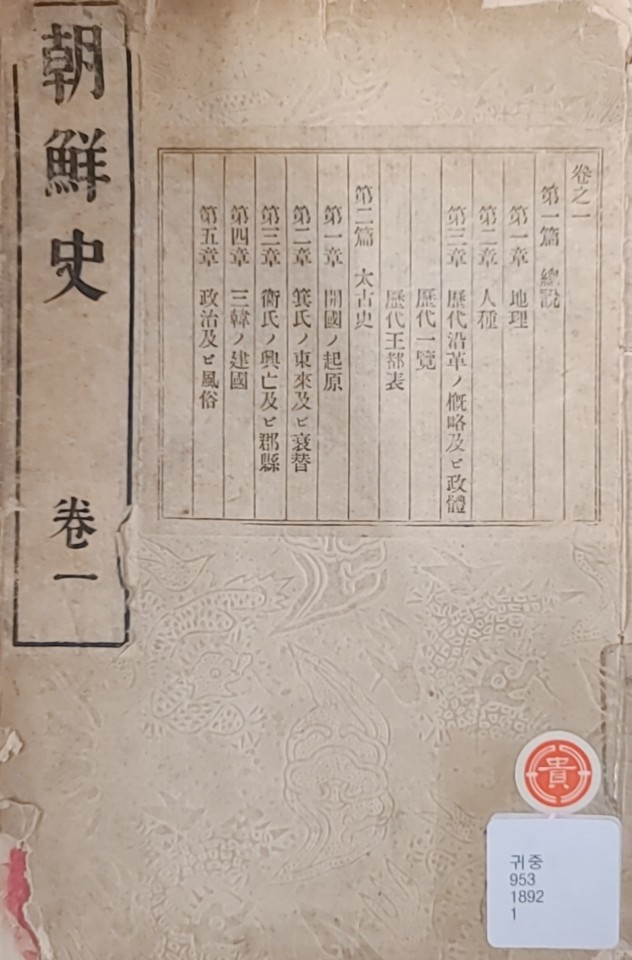 朝鮮史 卷一
卷之一
第一篇 總說
第一章 地理
第二章 人種
第三章 歷代沿革ノ慨略及ヒ政體
歷代一覽
歷代王都表
第二篇 太古史
第一章 開國ノ起原
第二章 箕氏ノ東來及ヒ衰替
第三章 衛氏ノ興亡及ヒ郡縣
第四章 三韓ノ建國
第五章 政治及ヒ風俗
貴
귀중
953
1892
1